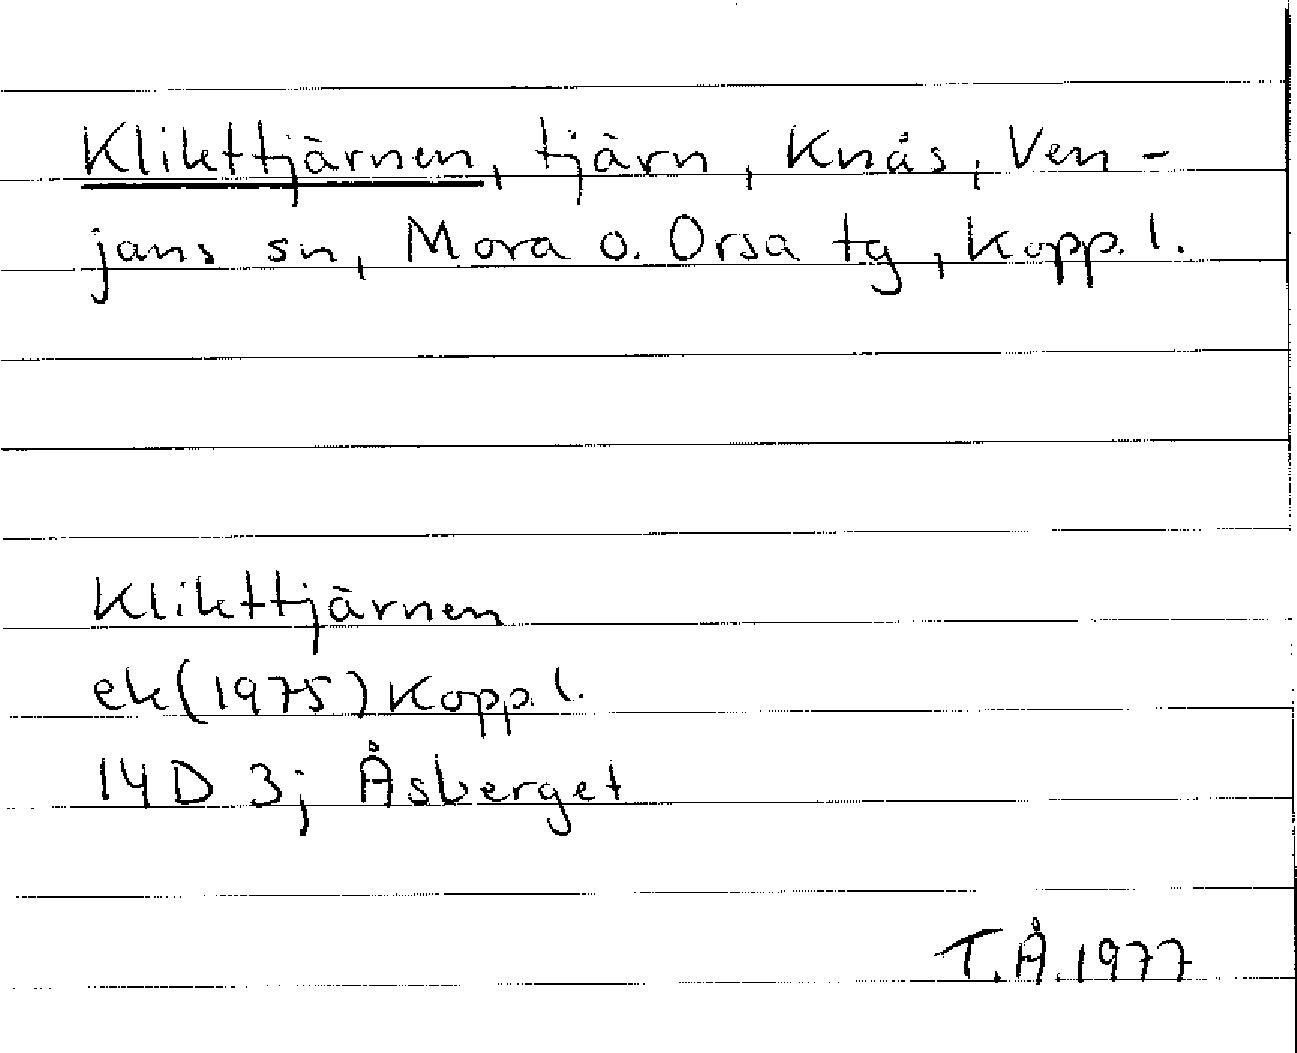 Klikttjärnen, tjärn, Knås, Ven-
jans sn, Mora o. Orsa tg, Kopp. l.
Klikttjärnen
ek (1975) Kopp. l.
14D 3j Åsberget
T.Å. 1977